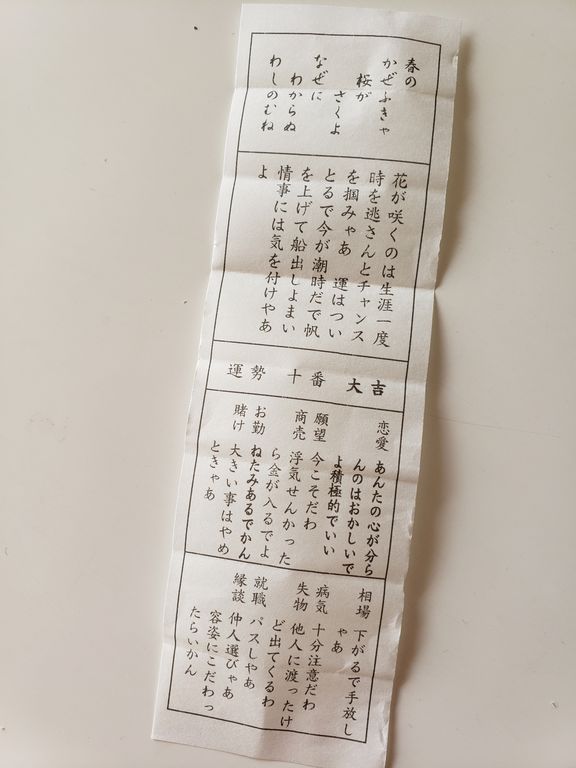 春の
かぜふきゃ
桜が
さくよ
なぜに
わからぬ
わしのむね
花が咲くのは生涯一度
時を逃さんとチャンス
を掴みゃあ　運はつい
とるで今が潮時だで帆
を上げて船出しよまい
情事には気を付けやあ
よ
運勢　十番　大吉
恋愛　あんたの心が分ら
んのはおかしいで
よ積極的でいい
願望　今こそだわ
商売　浮気せんかった
ら金が入るでよ
お勤　ねたみあるでかん
賭け　大きい事はやめ
ときゃあ
相場　下がるで手放し
ゃあ
病気　十分注意だわ
失物　他人に渡ったけ
ど出てくるわ
就職　パスしやあ
縁談　仲人選びゃあ
容姿にこだわっ
たらいかん